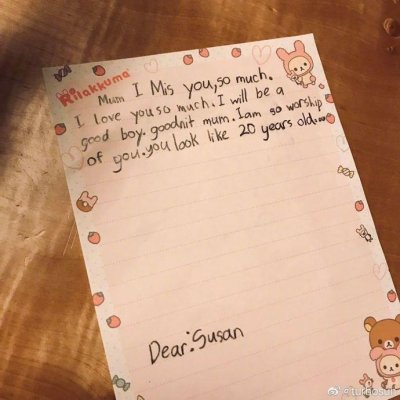 Rilakkuma
Mum I Mis you,so much.
I love you so much. I will be a
good boy. goodnit mum. Iam so worship
of you. you look like 20 years old....
Dear:Susan
@turbosun